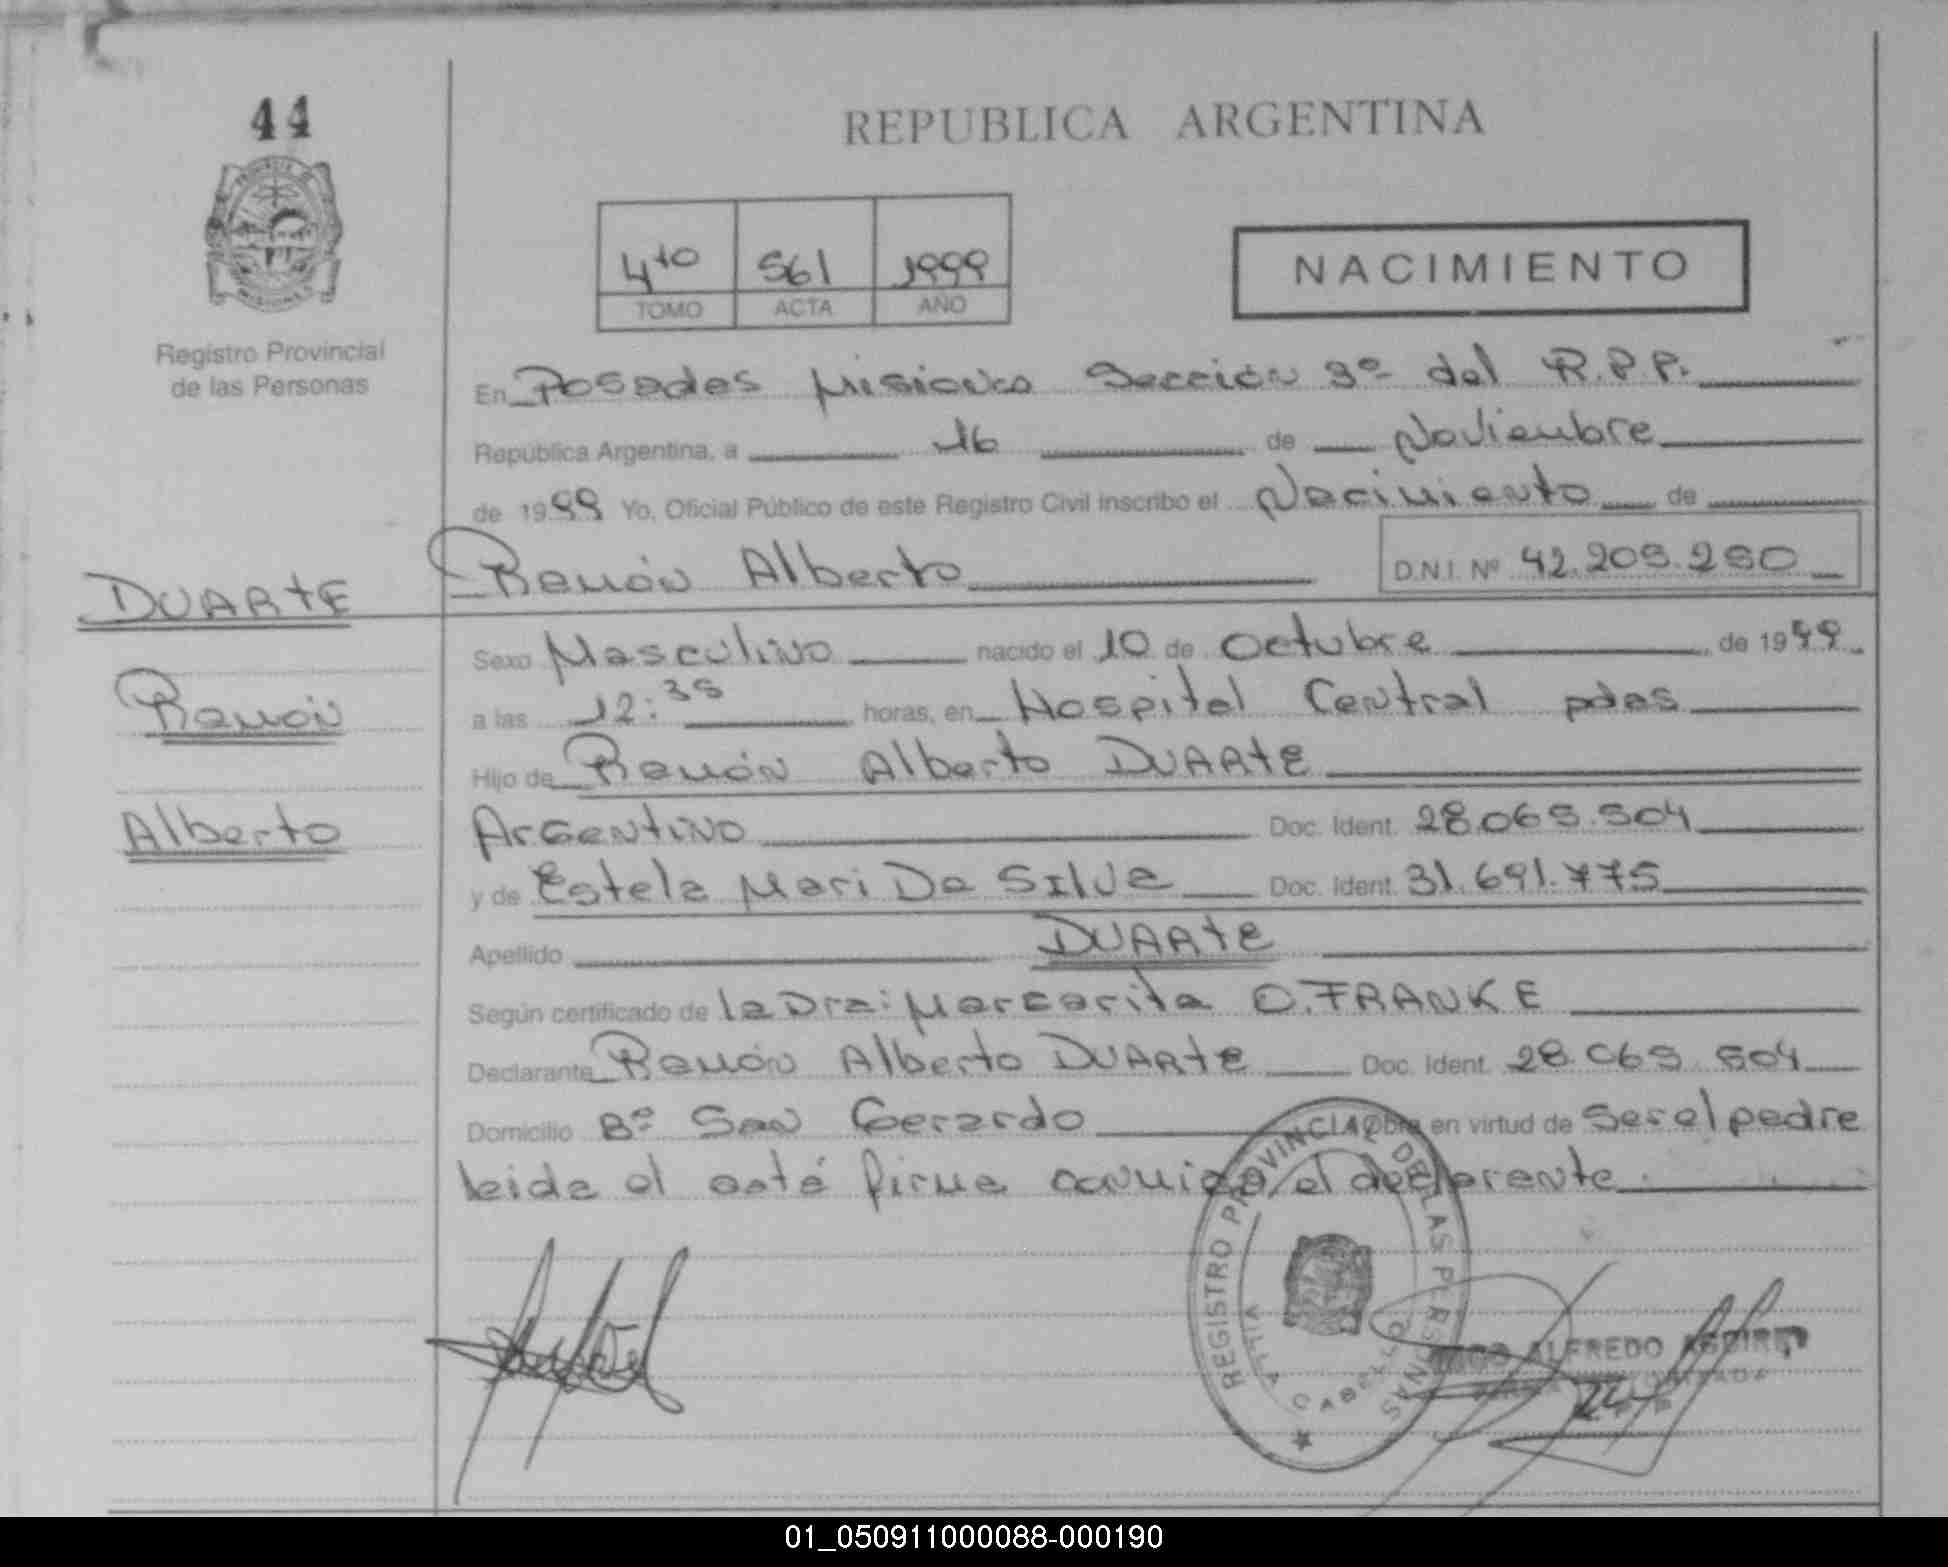 44
REPUBLICA ARGENTINA
4to 561 1999
TOMO ACTA AÑO
NACIMIENTO
Registro Provincial
de las Personas
En Posadas Misiones Sección 3º del R.P.P.
República Argentina, a 16 de Noviembre
de 1999 Yo, Oficial Público de este Registro Civil inscribo el Nacimiento de
Ramón Alberto D.N.I. Nº 42.205.250
DUARTE
Sexo Masculino nacido el 10 de Octubre de 1999
Ramón
a las 12:35 horas, en Hospital Central pdas
Hijo de Ramón Alberto DUARTE
Alberto
Argentino Doc. Ident. 28.065.504
y de Estela Mari Da Silva Doc. Ident. 31.691.775
Apellido DUARTE
Según certificado de la Dra: Margarita O. FRANKE
Declarante Ramón Alberto DUARTE Doc. Ident. 28.065.504
Domicilio Bº San Gerardo Obra en virtud de ser el padre
leida el acta firma conmigo el declarante
REGISTRO PROVINCIAL DE LAS PERSONAS
VILLA CABELLO
ALFREDO AGUIRRE
01_050911000088-000190